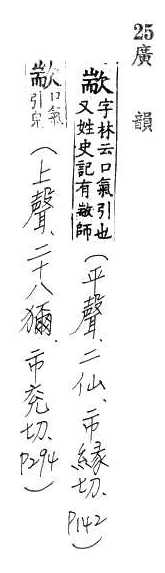 25廣韻
歂字林云口氣引也又姓史記有歂師(平聲、二仙、市緣切、P142)
歂口氣引皃(上聲、二十八獮、市兖切、P294)